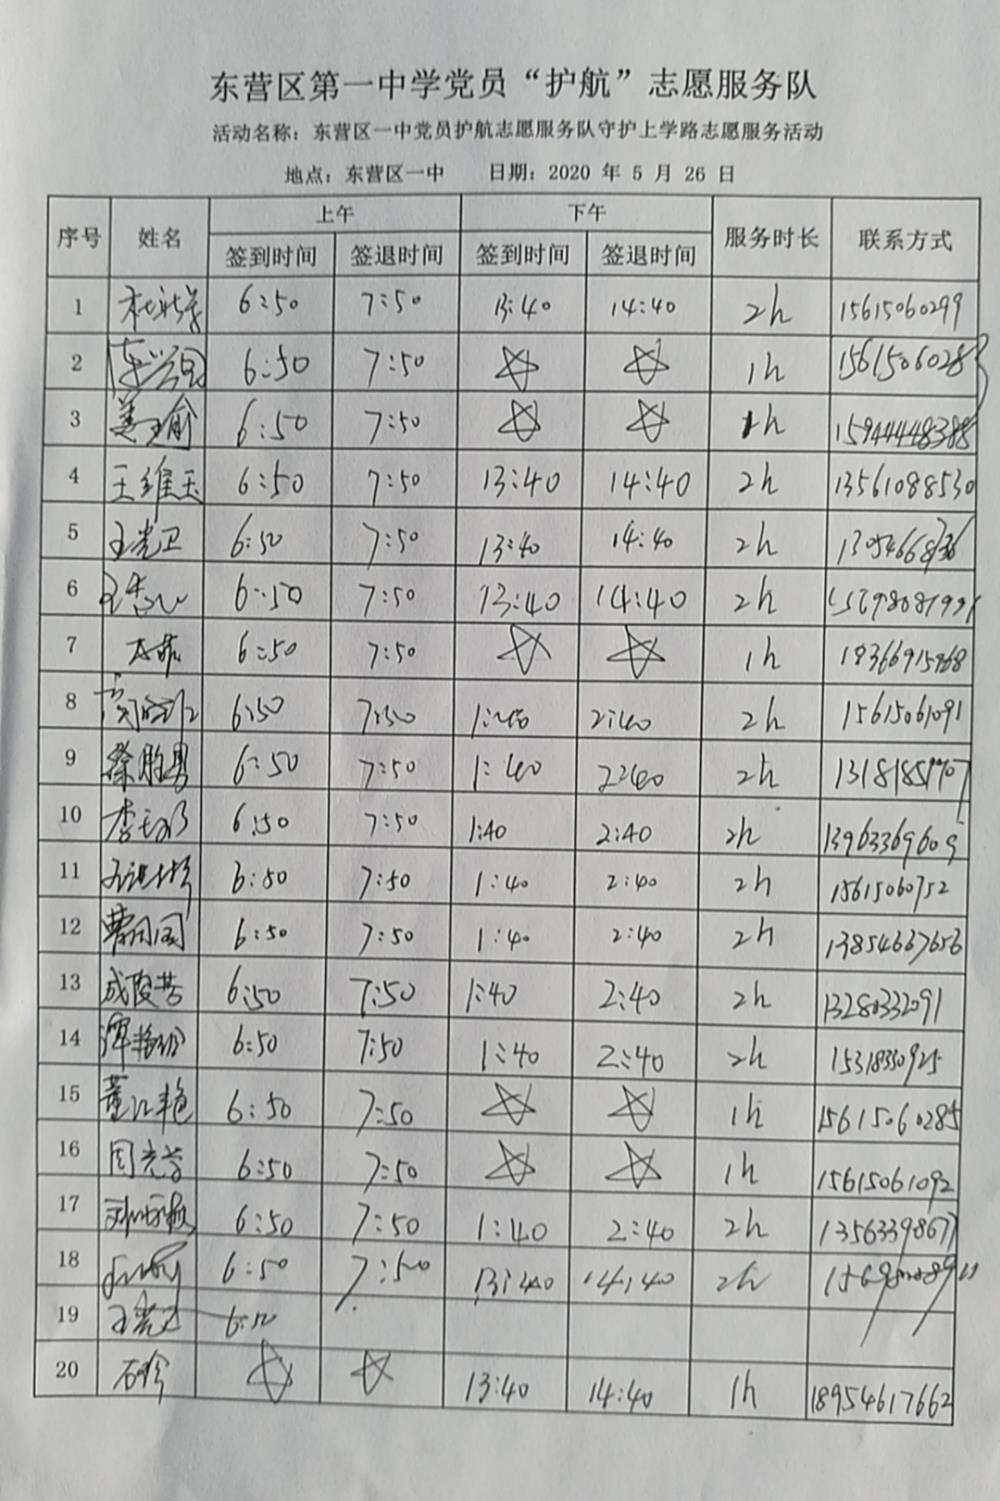 东营区第一中学党员“护航”志愿服务队
活动名称：东营区一中党员护航志愿服务队守护上学路志愿服务活动
地点：东营区一中 日期：2020 年 5 月 26 日
序号 姓名 上午 下午 服务时长 联系方式
签到时间 签退时间 签到时间 签退时间
1 6:50 7:50 13:40 14:40 2h 15615060299
2 6:50 7:50 ☆ ☆ 1h 1561506028
3 姜玉俞 6:50 7:50 ☆ ☆ 1h 15944448388
4 王维玉 6:50 7:50 13:40 14:40 2h 13561088530
5 王光卫 6:50 7:50 13:40 14:40 2h
6 6:50 7:50 13:40 14:40 2h
7 6:50 7:50 ☆ ☆ 1h 18366915968
8 6:50 7:50 1:40 2:40 2h 15615061091
9 6:50 7:50 1:40 2:40 2h
10 6:50 7:50 1:40 2:40 2h 13963369609
11 6:50 7:50 1:40 2:40 2h 15615060752
12 曹同国 6:50 7:50 1:40 2:40 2h 13854667656
13 成俊芳 6:50 7:50 1:40 2:40 2h 13280332091
14 谭艳 6:50 7:50 1:40 2:40 2h 15318350925
15 董江艳 6:50 7:50 ☆ ☆ 1h 15615060285
16 周光芳 6:50 7:50 ☆ ☆ 1h 15615061092
17 6:50 7:50 1:40 2:40 2h 13563398677
18 6:50 7:50 13:40 14:40 2h
19 王光卫 6:50
20 石珍 ☆ ☆ 13:40 14:40 1h 18954617662